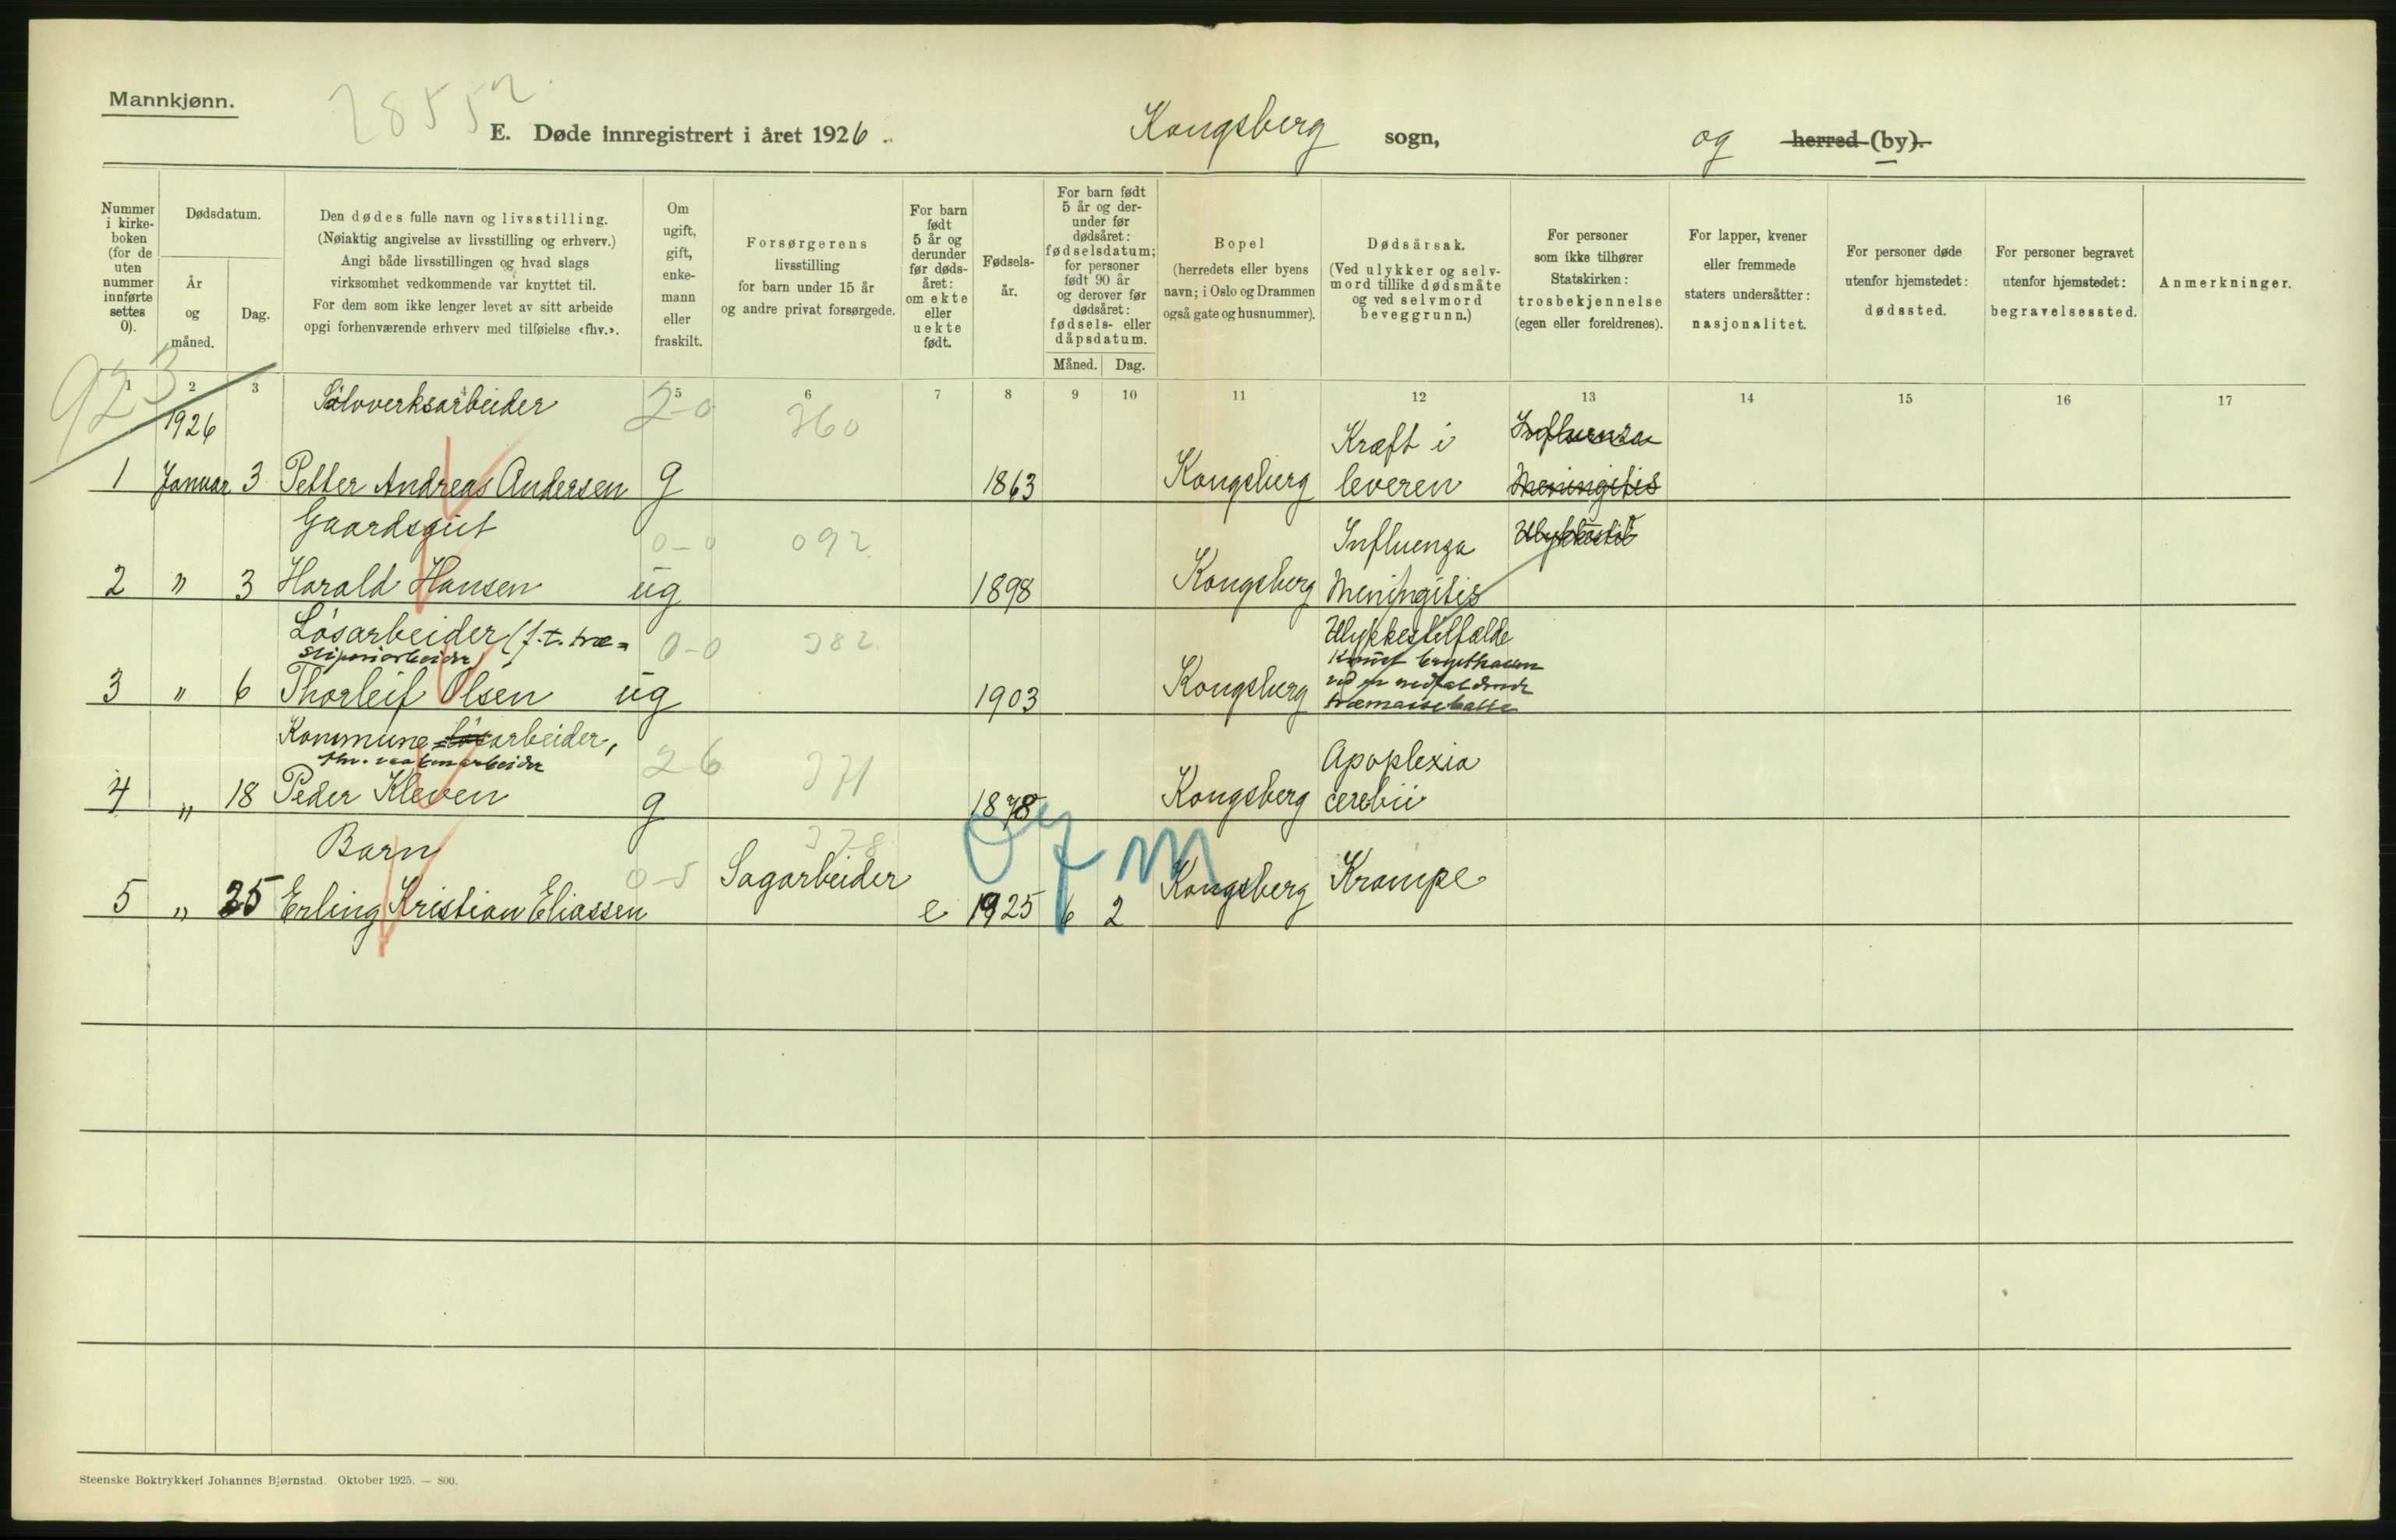 Mannkjønn.
28552
E. Døde innregistrert i året 1926.
Kongsberg sogn, og herred (by).
Nummer i kirkeboken (for de uten nummer innførte settes 0).
Dødsdatum.
År og måned.
Dag.
Den dødes fulle navn og livsstilling.
(Nøiaktig angivelse av livsstilling og erhverv.)
Angi både livsstillingen og hvad slags
virksomhet vedkommende var knyttet til.
For dem som ikke lenger levet av sitt arbeide
opgi forhenværende erhverv med tilføielse «fhv.».
Om ugift, gift, enkemann eller fraskilt.
Forsørgerens
livsstilling
for barn under 15 år
og andre privat forsørgede.
For barn født 5 år og derunder før dødsåret: om ekte eller uekte født.
Fødselsår.
For barn født 5 år og derunder før dødsåret: fødselsdatum; for personer født 90 år og derover før dødsåret: fødsels- eller dåpsdatum.
Måned. Dag.
Bopel
(herredets eller byens
navn; i Oslo og Drammen
også gate og husnummer).
Dødsårsak.
(Ved ulykker og selvmord tillike dødsmåte
og ved selvmord
beveggrunn.)
For personer
som ikke tilhører
Statskirken:
trosbekjennelse
(egen eller foreldrenes).
For lapper, kvener
eller fremmede
staters undersåtter:
nasjonalitet.
For personer døde
utenfor hjemstedet:
dødssted.
For personer begravet
utenfor hjemstedet:
begravelsessted.
Anmerkninger.
923
1 2 3 4 5 6 7 8 9 10 11 12 13 14 15 16 17
1926 Sølvverksarbeider 2-0 360 Kræft i Influenza
1 Januar 3 Petter Andreas Andersen g 1863 Kongsberg leveren Meningitis
Gaardsgut 0-0 092 Influenza
2 " 3 Harald Hansen ug 1898 Kongsberg Meningitis
Løsarbeider (f.t. træ= 0-0 382 Ulykkestilfælde
sliperiarbeider)
3 " 6 Thorleif Olsen ug 1903 Kongsberg
Kommune=løsarbeider, 2-6 371 Apoplexia
4 " 18 Peder Kleven g 1878 Kongsberg cerebii
Barn 378
5 " 25 Erling Kristian Eliassen 0-5 Sagarbeider e 1925 6 2 Kongsberg Krampe
Steenske Boktrykkeri Johannes Bjørnstad. Oktober 1925. — 800.